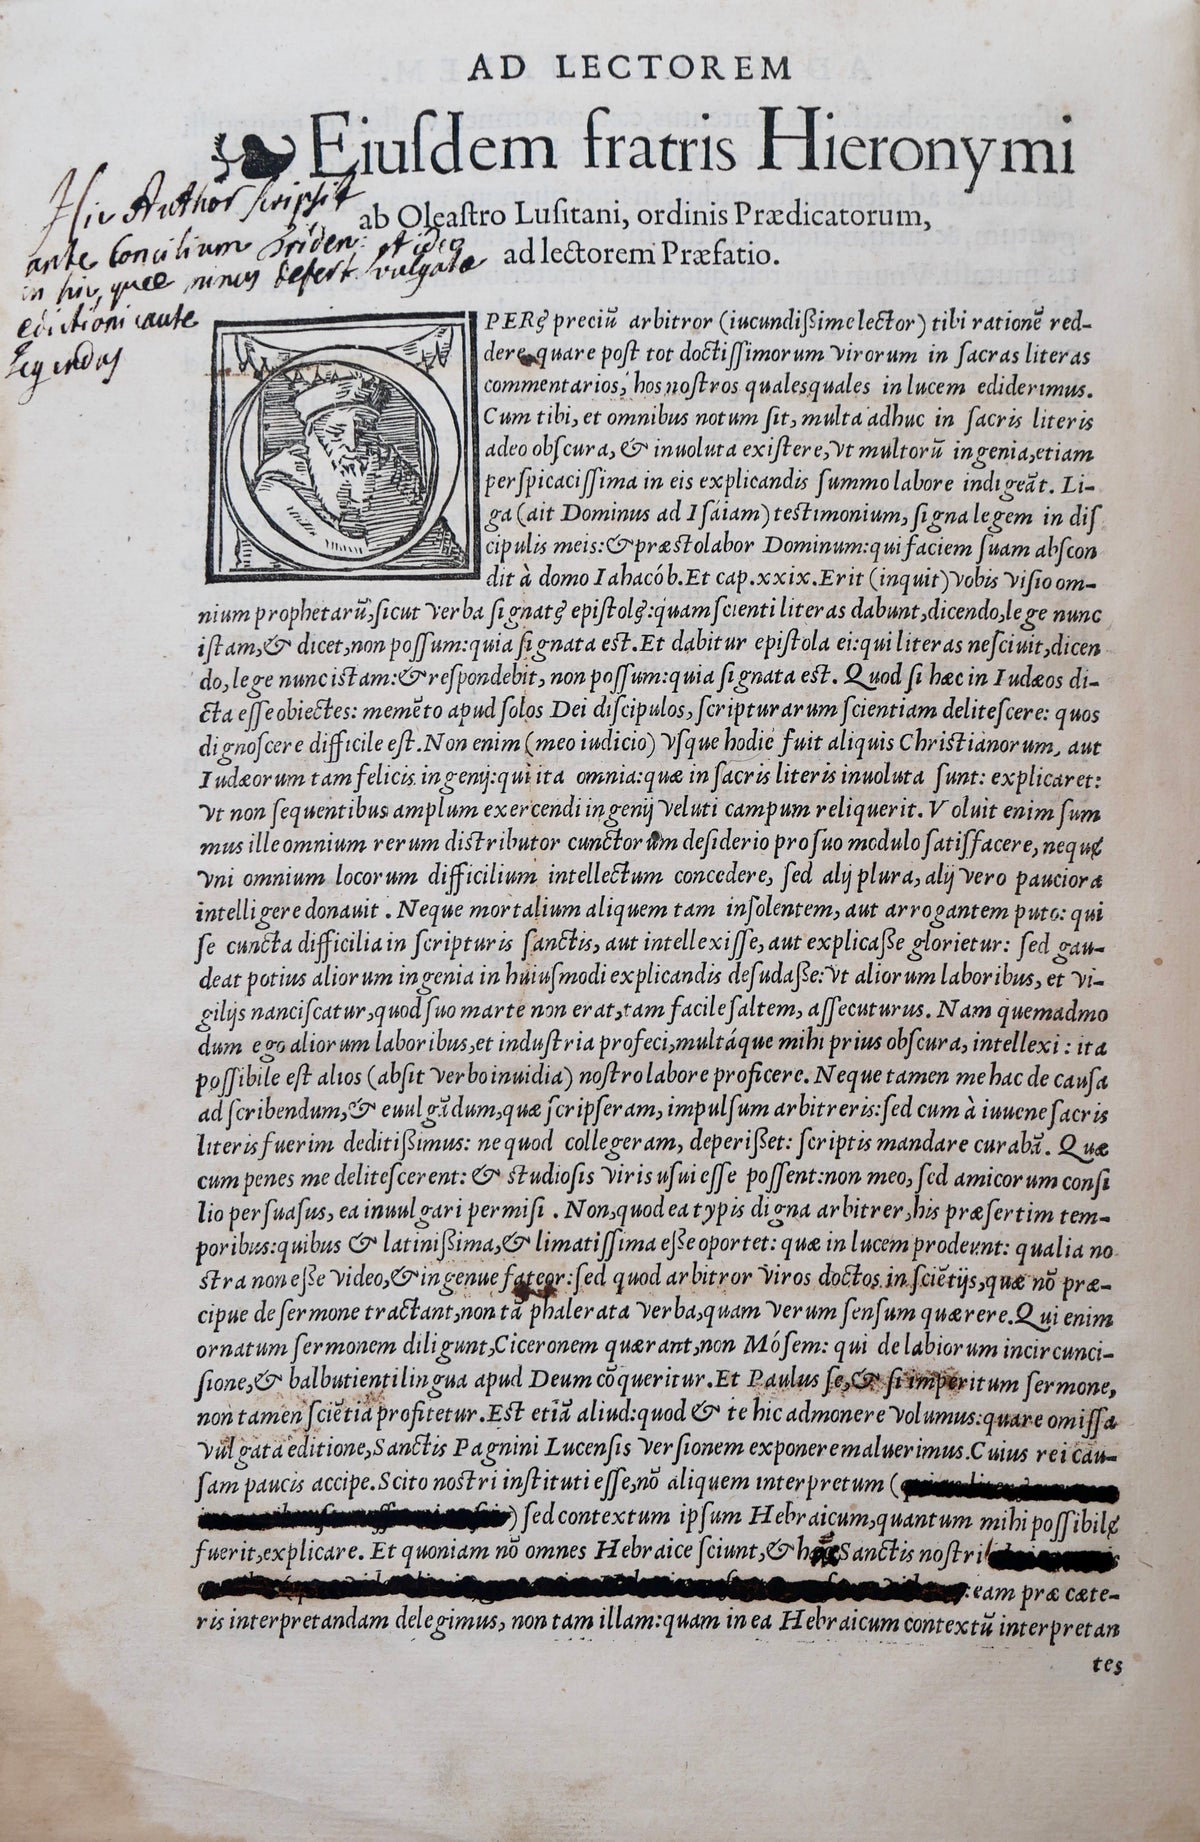 AD LECTOREM
Eiuſdem fratris Hieronymi
ab Oleaſtro Luſitani, ordinis Prædicatorum,
ad lectorem Præfatio.
Hic Author ſcripsit
ante Concilium Triden: et ideo
in his, quæ minus defert vulgatæ
editioni caute
legendus
OPERę preciū arbitror (iucundißime lector) tibi rationē red-
dere quare poſt tot doctiſſimorum virorum in ſacras literas
commentarios, hos noſtros qualesquales in lucem ediderimus.
Cum tibi, et omnibus notum ſit, multa adhuc in ſacris literis
adeo obſcura, & inuoluta exiſtere, vt multorū ingenia, etiam
perſpicaciſſima in eis explicandis ſummo labore indigeāt. Li-
ga (ait Dominus ad Iſáiam) teſtimonium, ſigna legem in diſ
cipulis meis: & præſtolabor Dominum: qui faciem ſuam abſcon
dit à domo Iahacób. Et cap. xxix. Erit (inquit) vobis viſio om-
nium prophetarū, ſicut verba ſignatę epiſtolę: quam ſcienti literas dabunt, dicendo, lege nunc
iſtam, & dicet, non poſſum: quia ſignata eſt. Et dabitur epiſtola ei: qui literas neſciuit, dicen
do, lege nunc iſtam: & reſpondebit, non poſſum: quia ſignata eſt. Quod ſi hæc in Iudæos di-
cta eſſe obiectes: memēto apud ſolos Dei diſcipulos, ſcripturarum ſcientiam deliteſcere: quos
dignoſcere difficile eſt. Non enim (meo iudicio) vſque hodie fuit aliquis Chriſtianorum, aut
Iudæorum tam felicis ingenij: qui ita omnia: quæ in ſacris literis inuoluta ſunt: explicaret:
vt non ſequentibus amplum exercendi ingenij veluti campum reliquerit. Voluit enim ſum
mus ille omnium rerum diſtributor cunctorum deſiderio pro ſuo modulo ſatiſfacere, nequę
vni omnium locorum difficilium intellectum concedere, ſed alij plura, alij vero pauciora
intelligere donauit. Neque mortalium aliquem tam inſolentem, aut arrogantem puto: qui
ſe cuncta difficilia in ſcripturis ſanctis, aut intellexiſſe, aut explicaße glorietur: ſed gau-
deat potius aliorum ingenia in huiuſmodi explicandis deſudaße: vt aliorum laboribus, et vi-
gilijs nanciſcatur, quod ſuo marte non erat, tam facile ſaltem, aſſecuturus. Nam quemadmo
dum ego aliorum laboribus, et induſtria profeci, multáque mihi prius obſcura, intellexi: ita
poſſibile eſt alios (abſit verbo inuidia) noſtro labore proficere. Neque tamen me hac de cauſa
ad ſcribendum, & euulgādum, quæ ſcripſeram, impulſum arbitreris: ſed cum à iuuene ſacris
literis fuerim deditißimus: ne quod collegeram, deperißet: ſcriptis mandare curabā. Quæ
cum penes me deliteſcerent: & ſtudioſis viris uſui eſſe poſſent: non meo, ſed amicorum conſi
lio perſuaſus, ea inuulgari permiſi. Non, quod ea typis digna arbitrer, his præſertim tem-
poribus: quibus & latinißima, & limatiſſima eße oportet: quæ in lucem prodeunt: qualia no
ſtra non eße video, & ingenue fateor: ſed quod arbitror viros doctos in ſciētijs, quæ nō præ-
cipue de ſermone tractant, non tā phalerata verba, quam verum ſenſum quærere. Qui enim
ornatum ſermonem diligunt, Ciceronem quærant, non Móſem: qui de labiorum incircunci-
ſione, & balbutienti lingua apud Deum cōqueritur. Et Paulus ſe, & ſi imperitum ſermone,
non tamen ſciētia profitetur. Eſt etiā aliud: quod & te hic admonere volumus: quare omiſſa
vulgata editione, Sanctis Pagnini Lucenſis verſionem exponere maluerimus. Cuius rei cau-
ſam paucis accipe. Scito noſtri inſtituti eſſe, nō aliquem interpretum (
) ſed contextum ipſum Hebraicum, quantum mihi poſſibilę
fuerit, explicare. Et quoniam nō omnes Hebraice ſciunt, & Sanctis noſtri
: eam præ cæte-
ris interpretandam delegimus, non tam illam: quam in ea Hebraicum contextū interpretan
tes